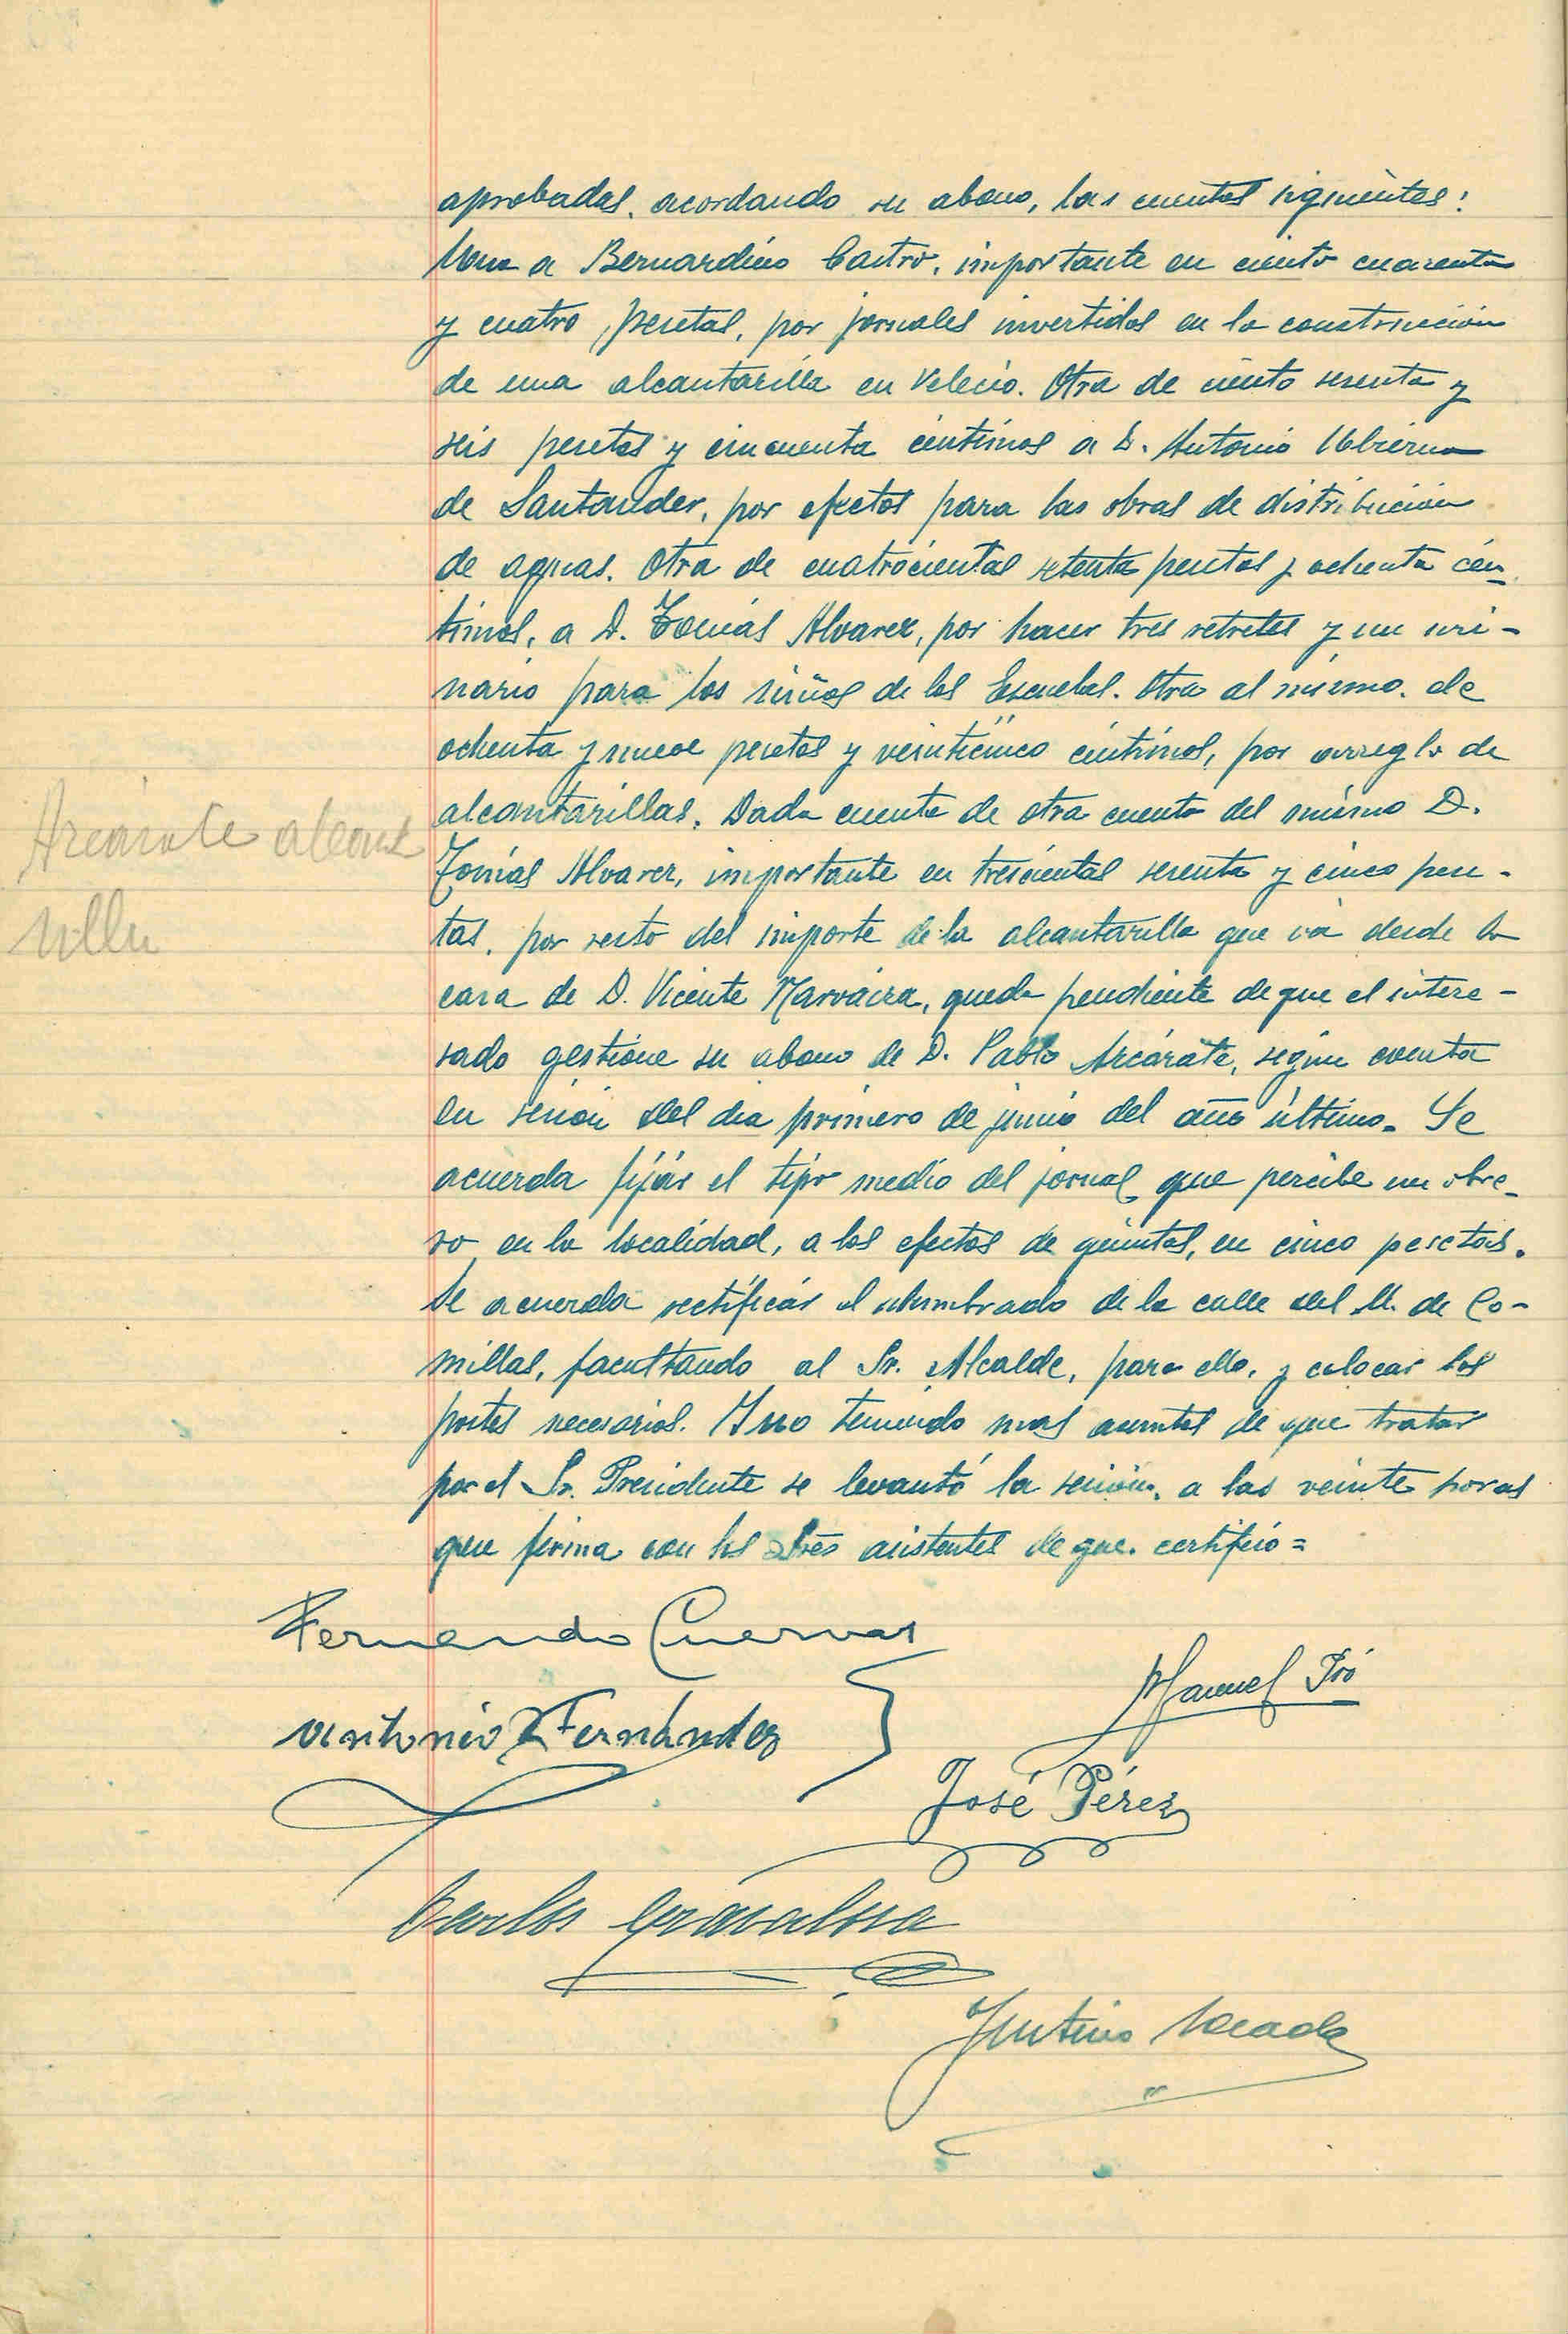 aprobadas, acordando su abono, las cuentas siguientes:
Una a Bernardino Castro, importante en ciento cuarenta
y cuatro pesetas, por jornales invertidos en la construcción
de una alcantarilla en Velecio. Otra de ciento sesenta y
seis pesetas y cincuenta céntimos a D. Antonio Ubierna
de Santander, por efectos para las obras de distribución
de aguas. Otra de cuatrocientas setenta pesetas y ochenta cén-
timos, a D. Tomás Alvarez, por hacer tres retretes y un uri-
nario para los niños de las Escuelas. Otra al mismo, de
ochenta y nueve pesetas y veinticinco céntimos, por arreglo de
alcantarillas. Dada cuenta de otra cuenta del mismo D.
Tomás Alvarez, importante en trescientas sesenta y cinco pese-
tas, por resto del importe de la alcantarilla que va desde la
casa de D. Vicente, queda pendiente de que el intere-
sado gestione su abono de D. Pablo Arcárate, según consta
en sesión del dia primero de junio del año último. Se
acuerda fijár el tipo medio del jornal que percibe un obre-
ro en la localidad, a los efectos de quintas, en cinco pesetas.
Se acuerda rectificár el alumbrado de la calle del M. de Co-
millas, facultando al Sr. Alcalde, para ello, y colocar los
postes necesarios. Y no teniendo mas asuntos de que tratar
por el Sr. Presidente se levantó la sesión, a las veinte horas
que firma con los Sres asistentes de que certifico=
Arcárate alcant
rilla
Fernando Cuevas
Manuel
Antonio Fernández
José Pérez
Carlos
Justino